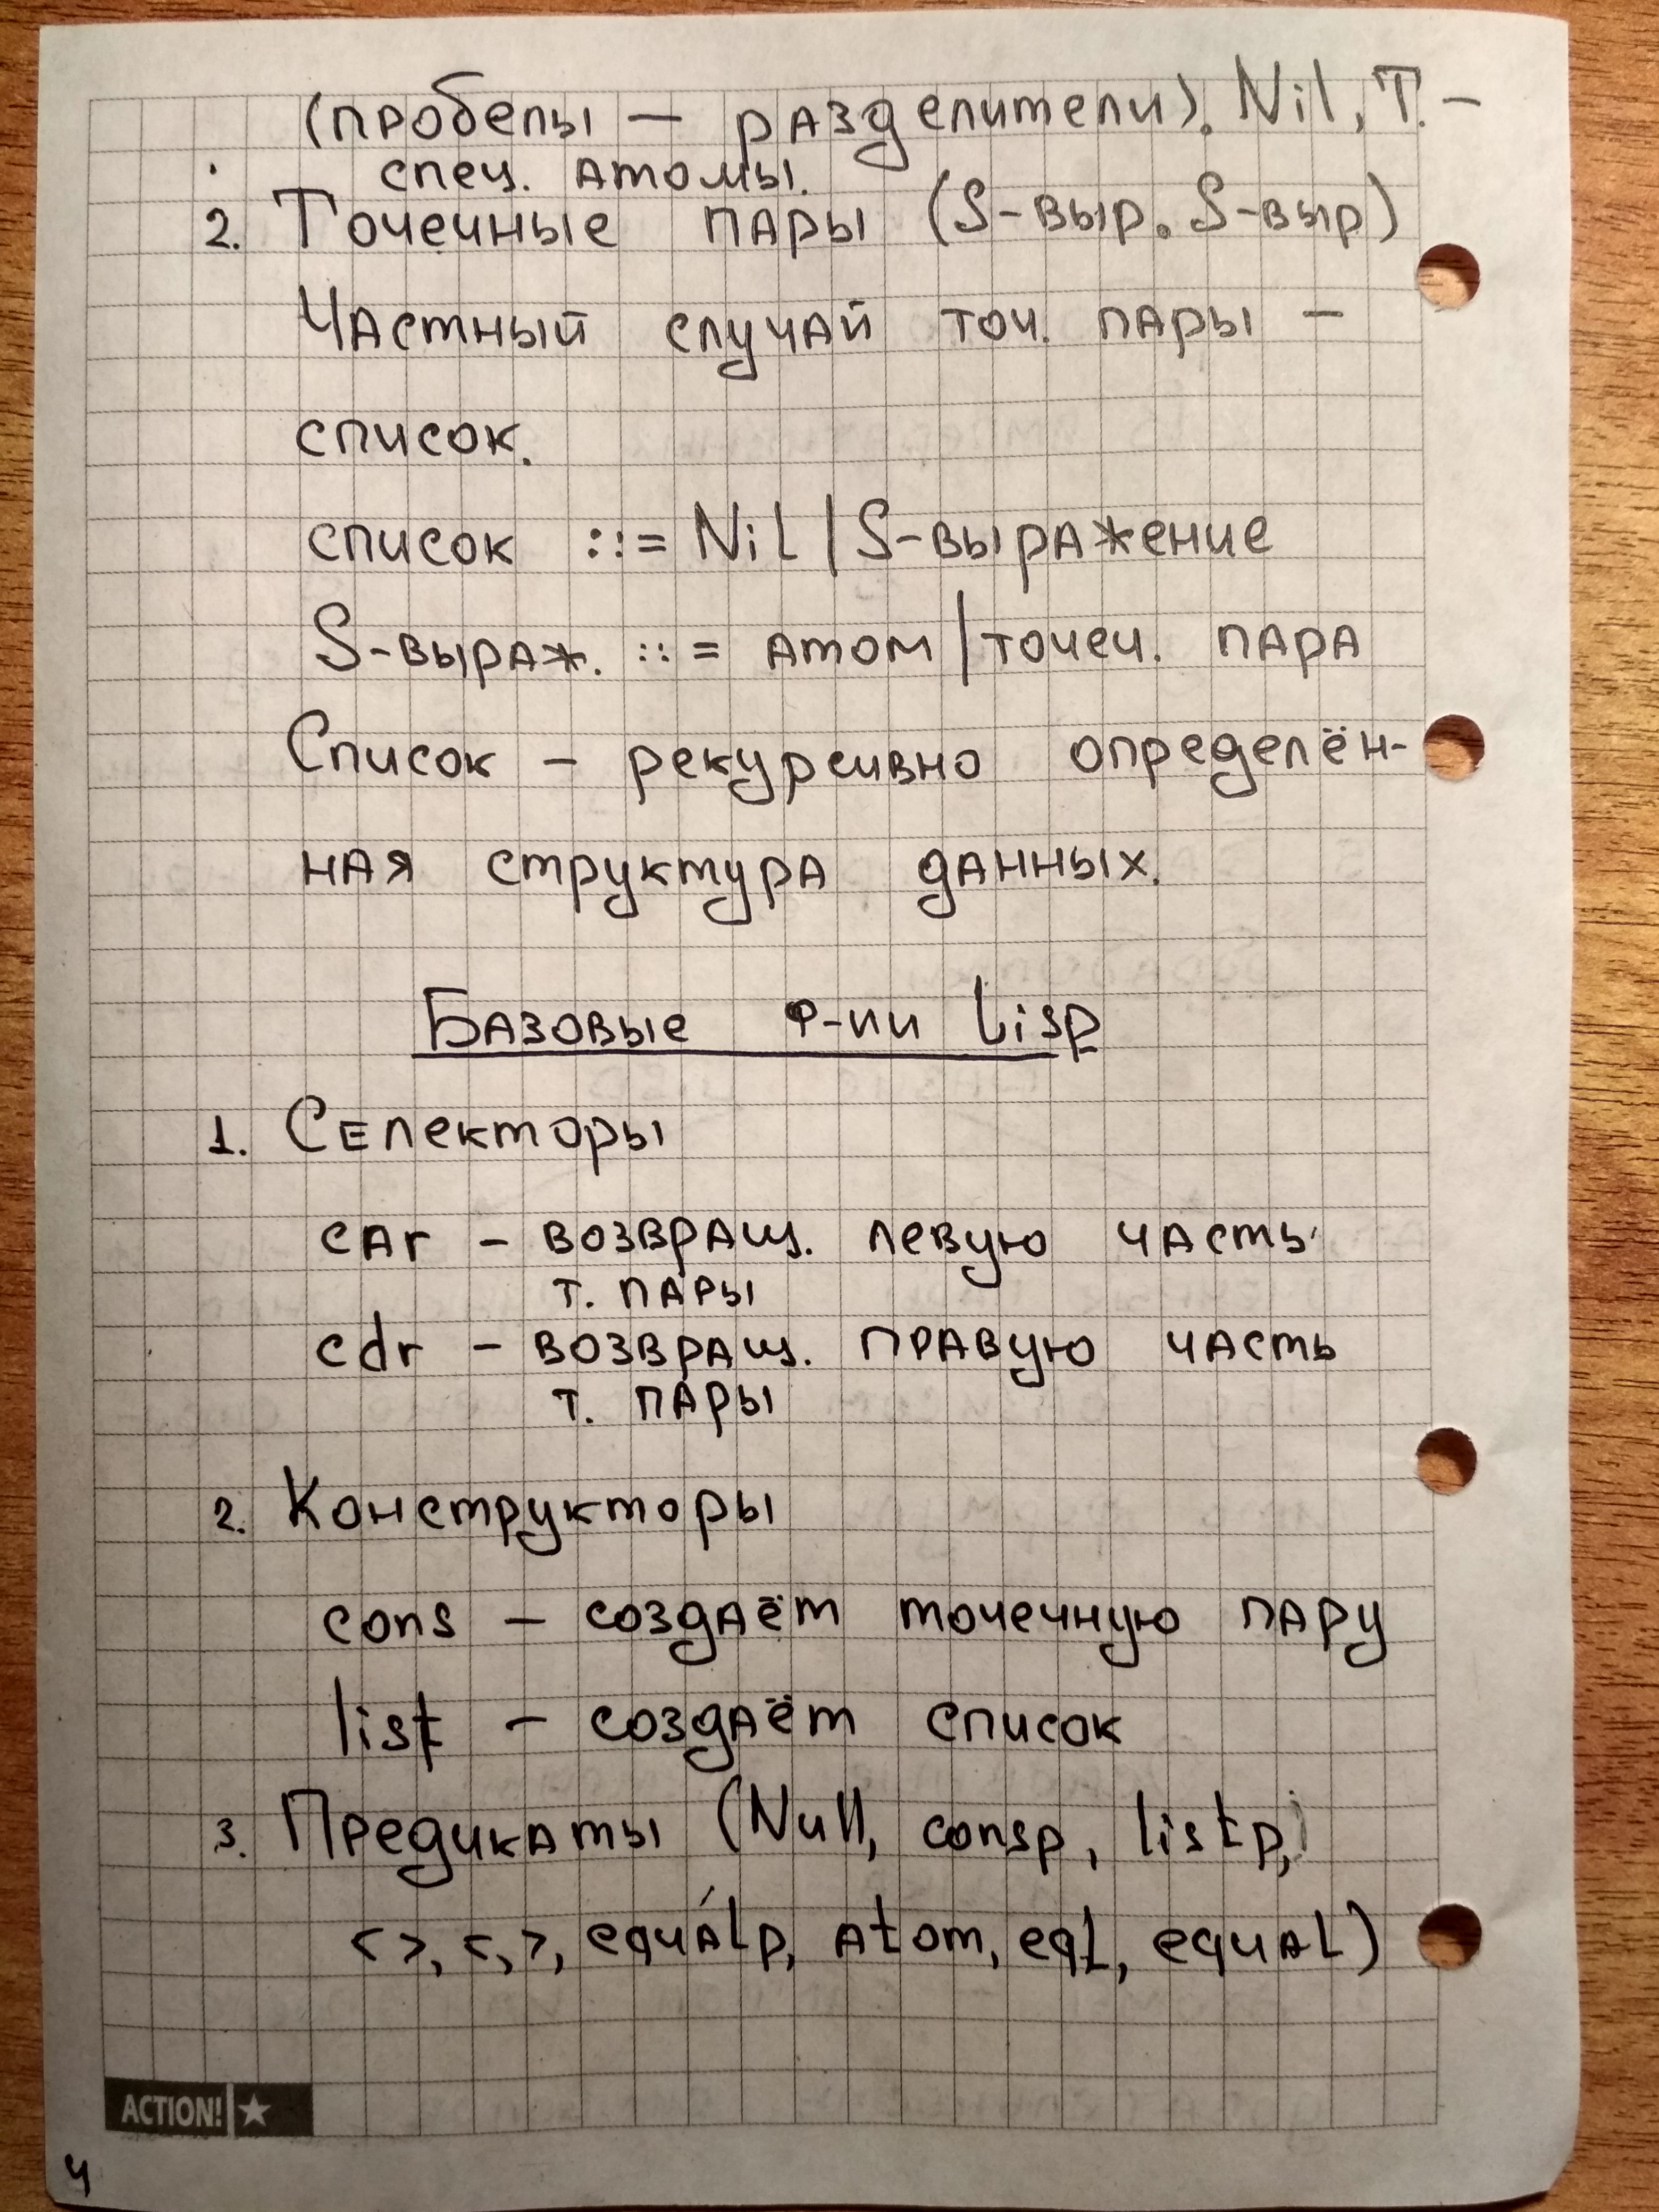 (пробелы — разделители). Nil, T. —
спец. атомы.
2. Точечные пары (S-выр. S-выр)
Частный случай точ. пары —
список.
список ::= Nil | S-выражение
S-выраж. ::= атом | точеч. пара
Список — рекурсивно определён-
ная структура данных.
Базовые ф-ии Lisp
1. Селекторы
car — возвращ. левую часть
т. пары
cdr — возвращ. правую часть
т. пары
2. Конструкторы
cons — создаёт точечную пару
list — создаёт список
3. Предикаты (Null, consp, listp,
<>, <, >, equalp, atom, eql, equal)
ACTION! ★
4